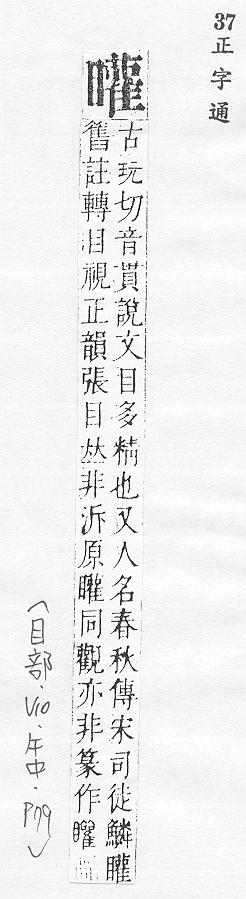 37
正字通
矔
古玩切音貫說文目多精也又人名春秋傳宋司徒鱗矔
舊註轉目視正韻張目𠀤非泝原矔同觀亦非篆作矔
(目部.V10.午中.P79)